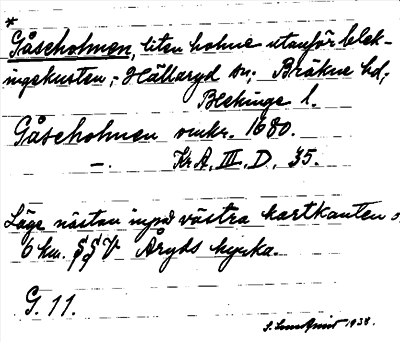 *
Gåseholmen, liten holme utanför blek-
ingekusten; Hällaryd sn; Bräkne hd;
Blekinge l.
Gåseholmen omkr. 1680.
—. Kr A, III, D, 35.
Läge nästan inpå västra kartkanten
6 km. Åryds kyrka.
G. 11.
S. Lundqvist 1938.